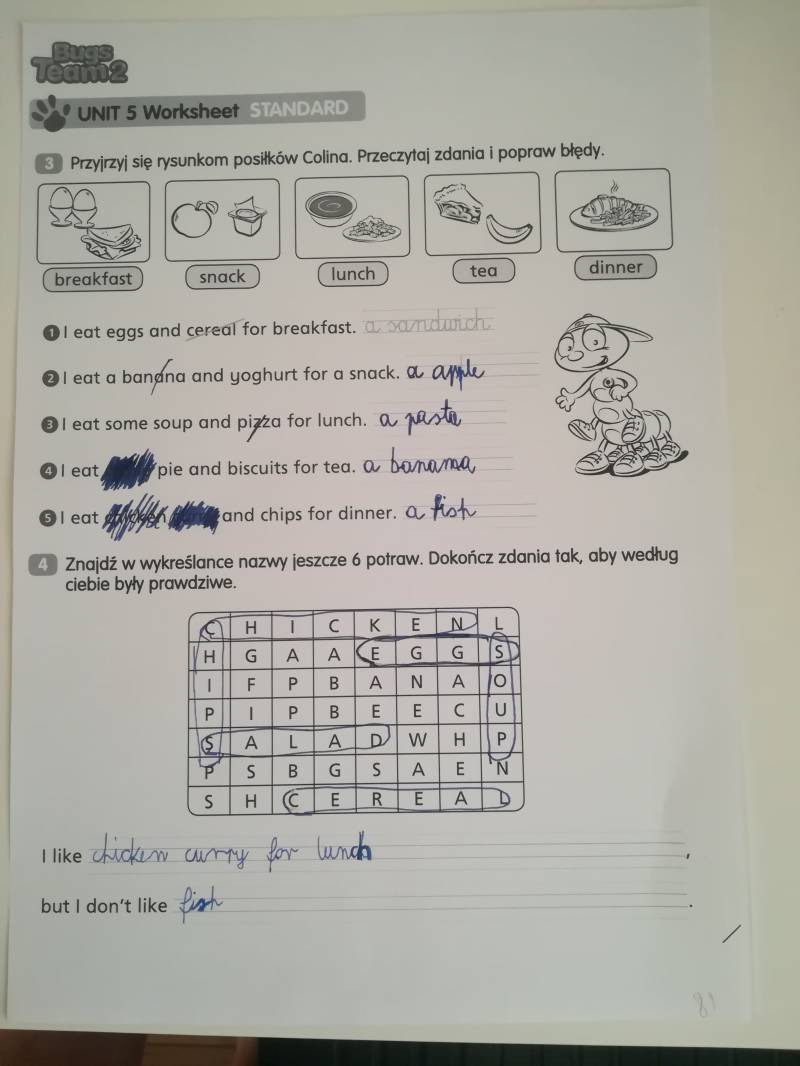 Bugs
Team 2
UNIT 5 Worksheet STANDARD
3 Przyjrzyj się rysunkom posiłków Colina. Przeczytaj zdania i popraw błędy.
breakfast snack lunch tea dinner
1 I eat eggs and cereal for breakfast. a sandwich
2 I eat a banana and yoghurt for a snack. a apple
3 I eat some soup and pizza for lunch. a pasta
4 I eat pie and biscuits for tea. a banana
5 I eat chicken and chips for dinner. a fish
4 Znajdź w wykreślance nazwy jeszcze 6 potraw. Dokończ zdania tak, aby według
ciebie były prawdziwe.
C H I C K E N L
H G A A E G G S
I F P B A N A O
P I P B E E C U
S A L A D W H P
P S B G S A E N
S H C E R E A L
I like chicken curry for lunch ,
but I don't like fish .
81